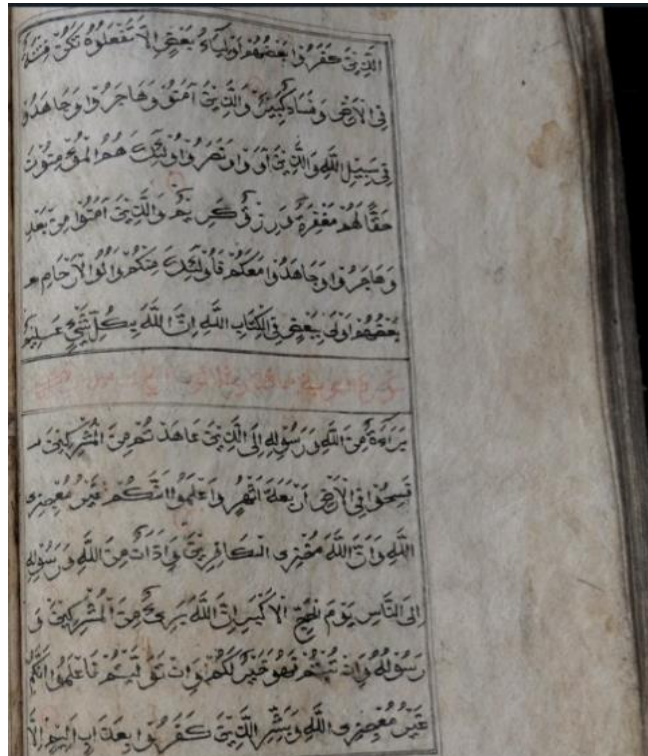 الَّذِينَ كَفَرُوا بَعْضُهُمْ أَوْلِيَاءُ بَعْضٍ إِلَّا تَفْعَلُوهُ تَكُنْ فِتْنَةٌ
فِي الْأَرْضِ وَفَسَادٌ كَبِيرٌ وَالَّذِينَ آمَنُوا وَهَاجَرُوا وَجَاهَدُوا
فِي سَبِيلِ اللَّهِ وَالَّذِينَ آوَوْا وَنَصَرُوا أُولَئِكَ هُمُ الْمُؤْمِنُونَ
حَقًّا لَهُمْ مَغْفِرَةٌ وَرِزْقٌ كَرِيمٌ وَالَّذِينَ آمَنُوا مِنْ بَعْدِ
وَهَاجَرُوا وَجَاهَدُوا مَعَكُمْ فَأُولَئِكَ مِنْكُمْ وَأُولُو الْأَرْحَامِ
بَعْضُهُمْ أَوْلَى بِبَعْضٍ فِي كِتَابِ اللَّهِ إِنَّ اللَّهَ بِكُلِّ شَيْءٍ عَلِيمٌ
سورة التوبة
بَرَاءَةٌ مِنَ اللَّهِ وَرَسُولِهِ إِلَى الَّذِينَ عَاهَدْتُمْ مِنَ الْمُشْرِكِينَ
فَسِيحُوا فِي الْأَرْضِ أَرْبَعَةَ أَشْهُرٍ وَاعْلَمُوا أَنَّكُمْ غَيْرُ مُعْجِزِي
اللَّهِ وَأَنَّ اللَّهَ مُخْزِي الْكَافِرِينَ وَأَذَانٌ مِنَ اللَّهِ وَرَسُولِهِ
إِلَى النَّاسِ يَوْمَ الْحَجِّ الْأَكْبَرِ إِنَّ اللَّهَ بَرِيءٌ مِنَ الْمُشْرِكِينَ وَ
رَسُولُهُ وَإِنْ تُبْتُمْ فَهُوَ خَيْرٌ لَكُمْ وَإِنْ تَوَلَّيْتُمْ فَاعْلَمُوا أَنَّكُمْ
غَيْرُ مُعْجِزِي اللَّهِ وَبَشِّرِ الَّذِينَ كَفَرُوا بِعَذَابٍ أَلِيمٍ إِلَّا